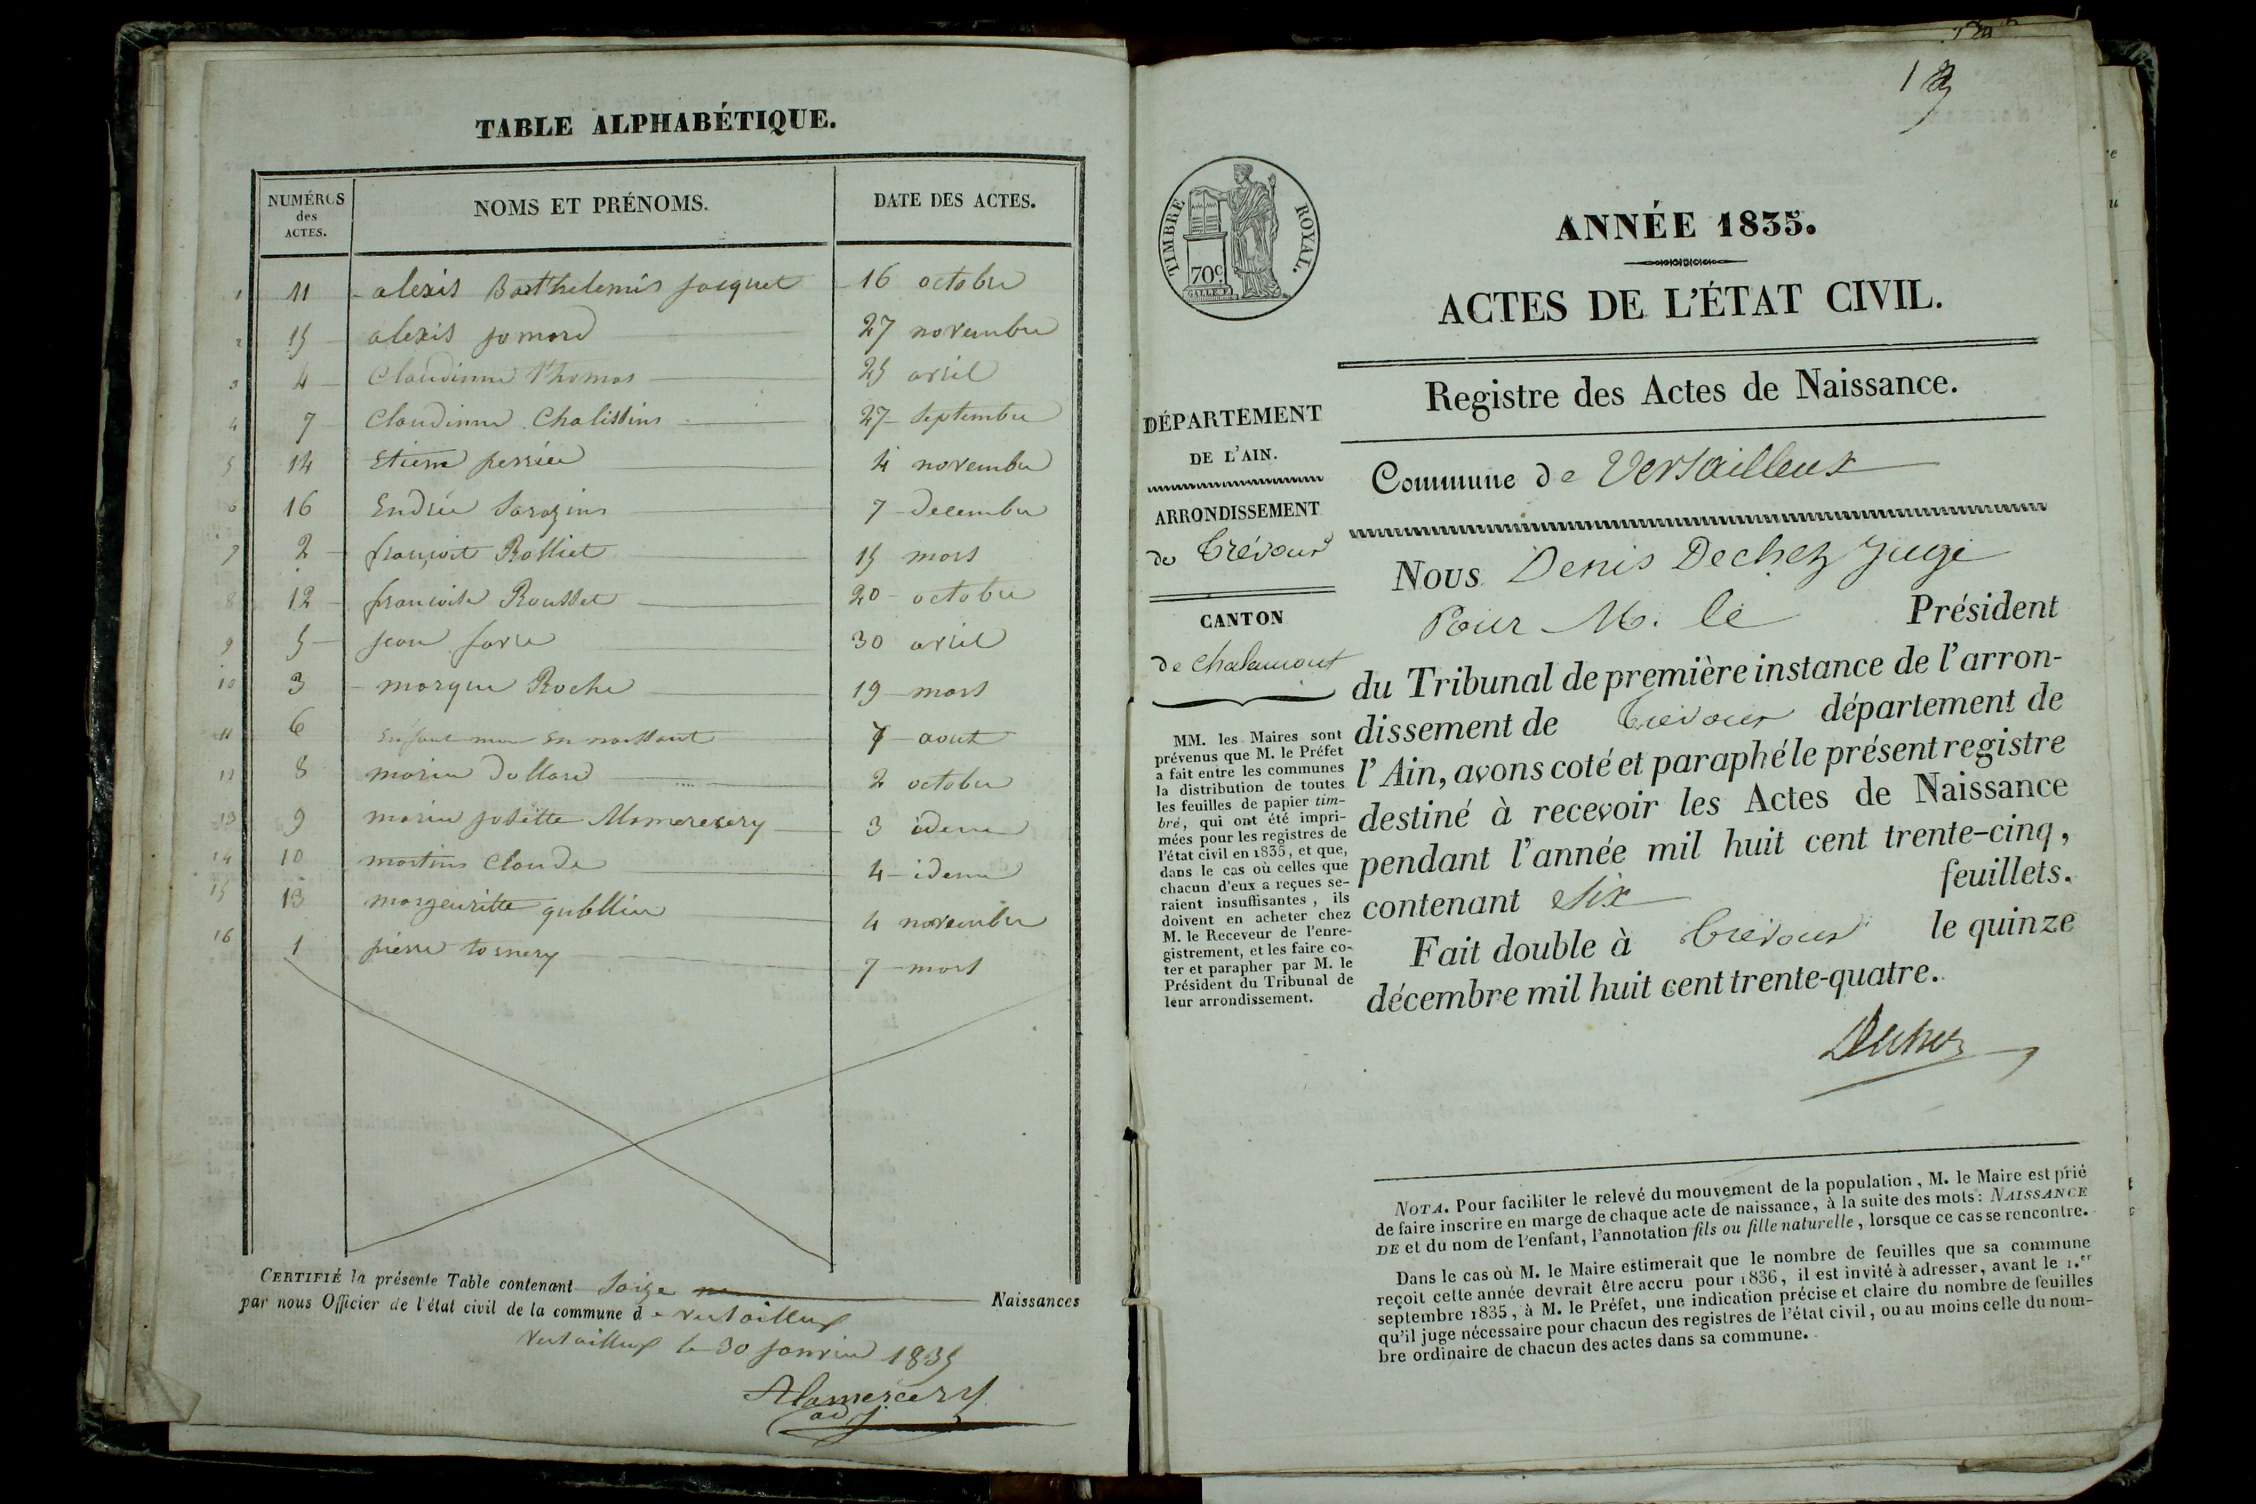 TABLE ALPHABÉTIQUE.
NUMÉROS des ACTES. NOMS ET PRÉNOMS. DATE DES ACTES.
1 11 alexis Barthelemis jacquet 16 octobre
2 15 alexis jomard 27 novembre
3 4 Claudinne Thomas 25 avril
4 7 Claudinne Chalissins 27 septembre
5 14 Etienne perrier 4 novembre
6 16 Endrée Sarazins 7 decembre
7 2 françoit Rolliet 15 mars
8 12 françoise Rousset 20 octobre
9 5 jean favre 30 avril
10 3 marque Roche 19 mars
11 6 Enfant mor En naissant 7 aout
12 8 marie dollard 2 octobre
13 9 marie josette Mamerecery 3 idem
14 10 martins Claude 4 idem
15 13 margeuritte 4 novembre
16 1 pierre tornery 7 mars
CERTIFIÉ la présente Table contenant Saize Naissances
par nous Officier de l'état civil de la commune de Versailleux
Versailleux le 30 janvier 1835
adj
TIMBRE ROYAL.
70c
ANNÉE 1835.
ACTES DE L'ÉTAT CIVIL.
Registre des Actes de Naissance.
DÉPARTEMENT
DE L'AIN.
ARRONDISSEMENT
de Trévoux
CANTON
de chalamont
MM. les Maires sont
prévenus que M. le Préfet
a fait entre les communes
la distribution de toutes
les feuilles de papier tim-
bré, qui ont été impri-
mées pour les registres de
l'état civil en 1835, et que,
dans le cas où celles que
chacun d'eux a reçues se-
raient insuffisantes, ils
doivent en acheter chez
M. le Receveur de l'enre-
gistrement, et les faire co-
ter et parapher par M. le
Président du Tribunal de
leur arrondissement.
Commune de Versailleux
Nous Denis Dechez Juge
Pour M. le Président
du Tribunal de première instance de l'arron-
dissement de Trévoux département de
l'Ain, avons coté et paraphé le présent registre
destiné à recevoir les Actes de Naissance
pendant l'année mil huit cent trente-cinq,
contenant six feuillets.
Fait double à Trévoux le quinze
décembre mil huit cent trente-quatre.
Dechez
NOTA. Pour faciliter le relevé du mouvement de la population, M. le Maire est prié
de faire inscrire en marge de chaque acte de naissance, à la suite des mots: NAISSANCE
DE et du nom de l'enfant, l'annotation fils ou fille naturelle, lorsque ce cas se rencontre.
Dans le cas où M. le Maire estimerait que le nombre de feuilles que sa commune
reçoit cette année devrait être accru pour 1836, il est invité à adresser, avant le 1.er
septembre 1835, à M. le Préfet, une indication précise et claire du nombre de feuilles
qu'il juge nécessaire pour chacun des registres de l'état civil, ou au moins celle du nom-
bre ordinaire de chacun des actes dans sa commune.